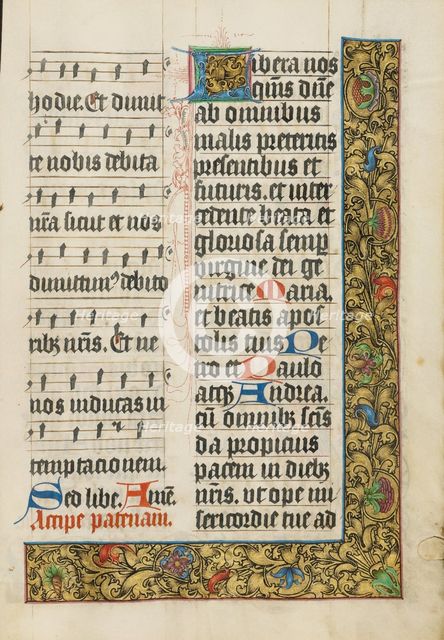 hodie. Et dimit
te nobis debita
nr̄a sicut et nos
dimittim⁹ debito
ribꝫ nr̄is. Et ne
nos inducas in
temptacionem.
Sed libe. Amē.
Accipe patenam.
Libera nos
q̄sum⁹ dn̄e
ab omnibus
malis preteritis
presentibus et
futuris. et inter
cedente beata et
gloriosa semp̄
virgine dei ge
nitrice Maria.
et beatis apo
stolis tuis Pe
tro et Paulo
atqꝫ Andrea.
cū omnibꝫ sc̄is
da propicius
pacem in diebꝫ
nr̄is. vt ope mi
sericordie tue ad